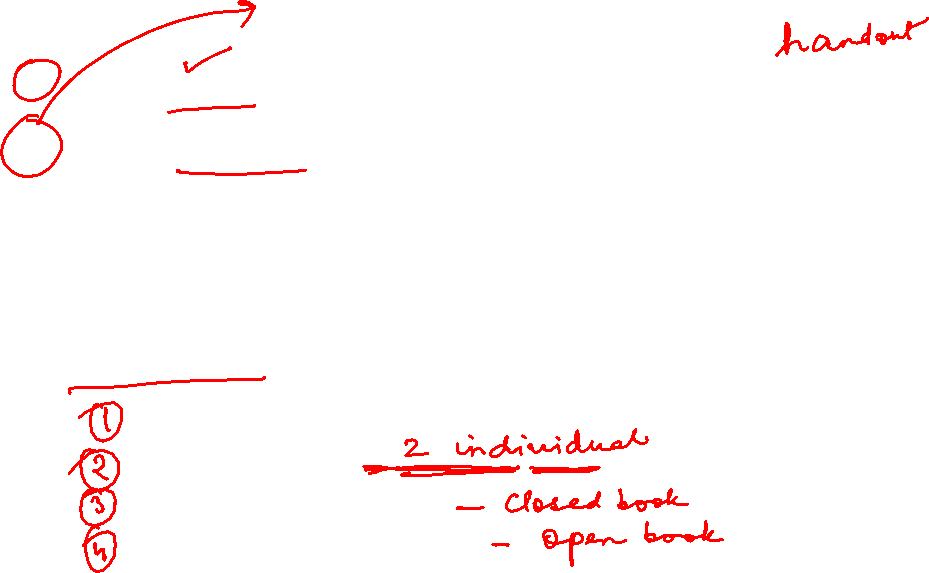 handout
1
2
3
4
2 individual
- Closed book
- Open book